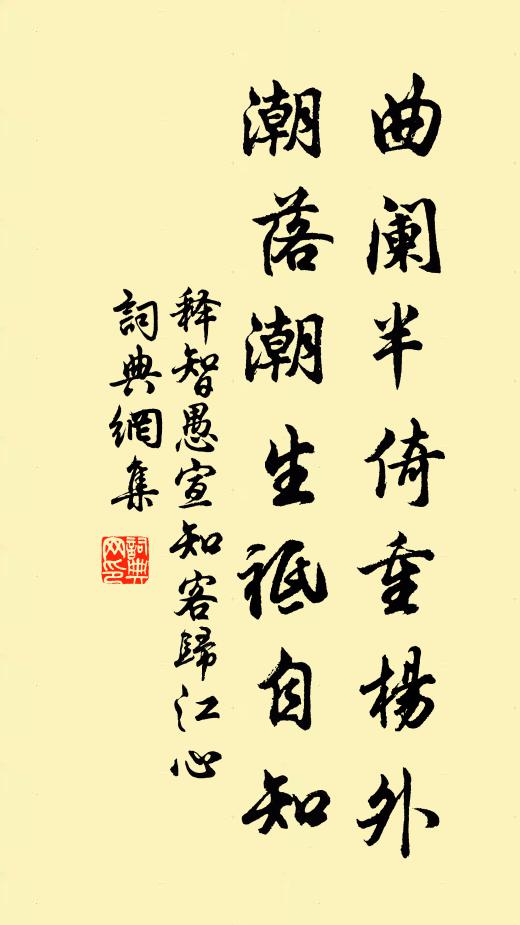 曲阑半倚重楊外
潮落潮生祗自知
释智愚宣知客歸江心
詞典網集
詞典
网印